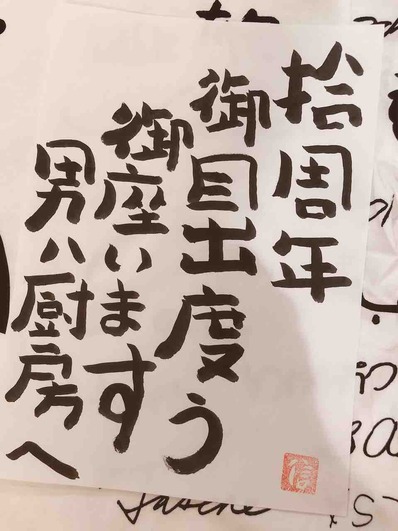 拾周年
御目出度う
御座います
男ハ厨房へ
信